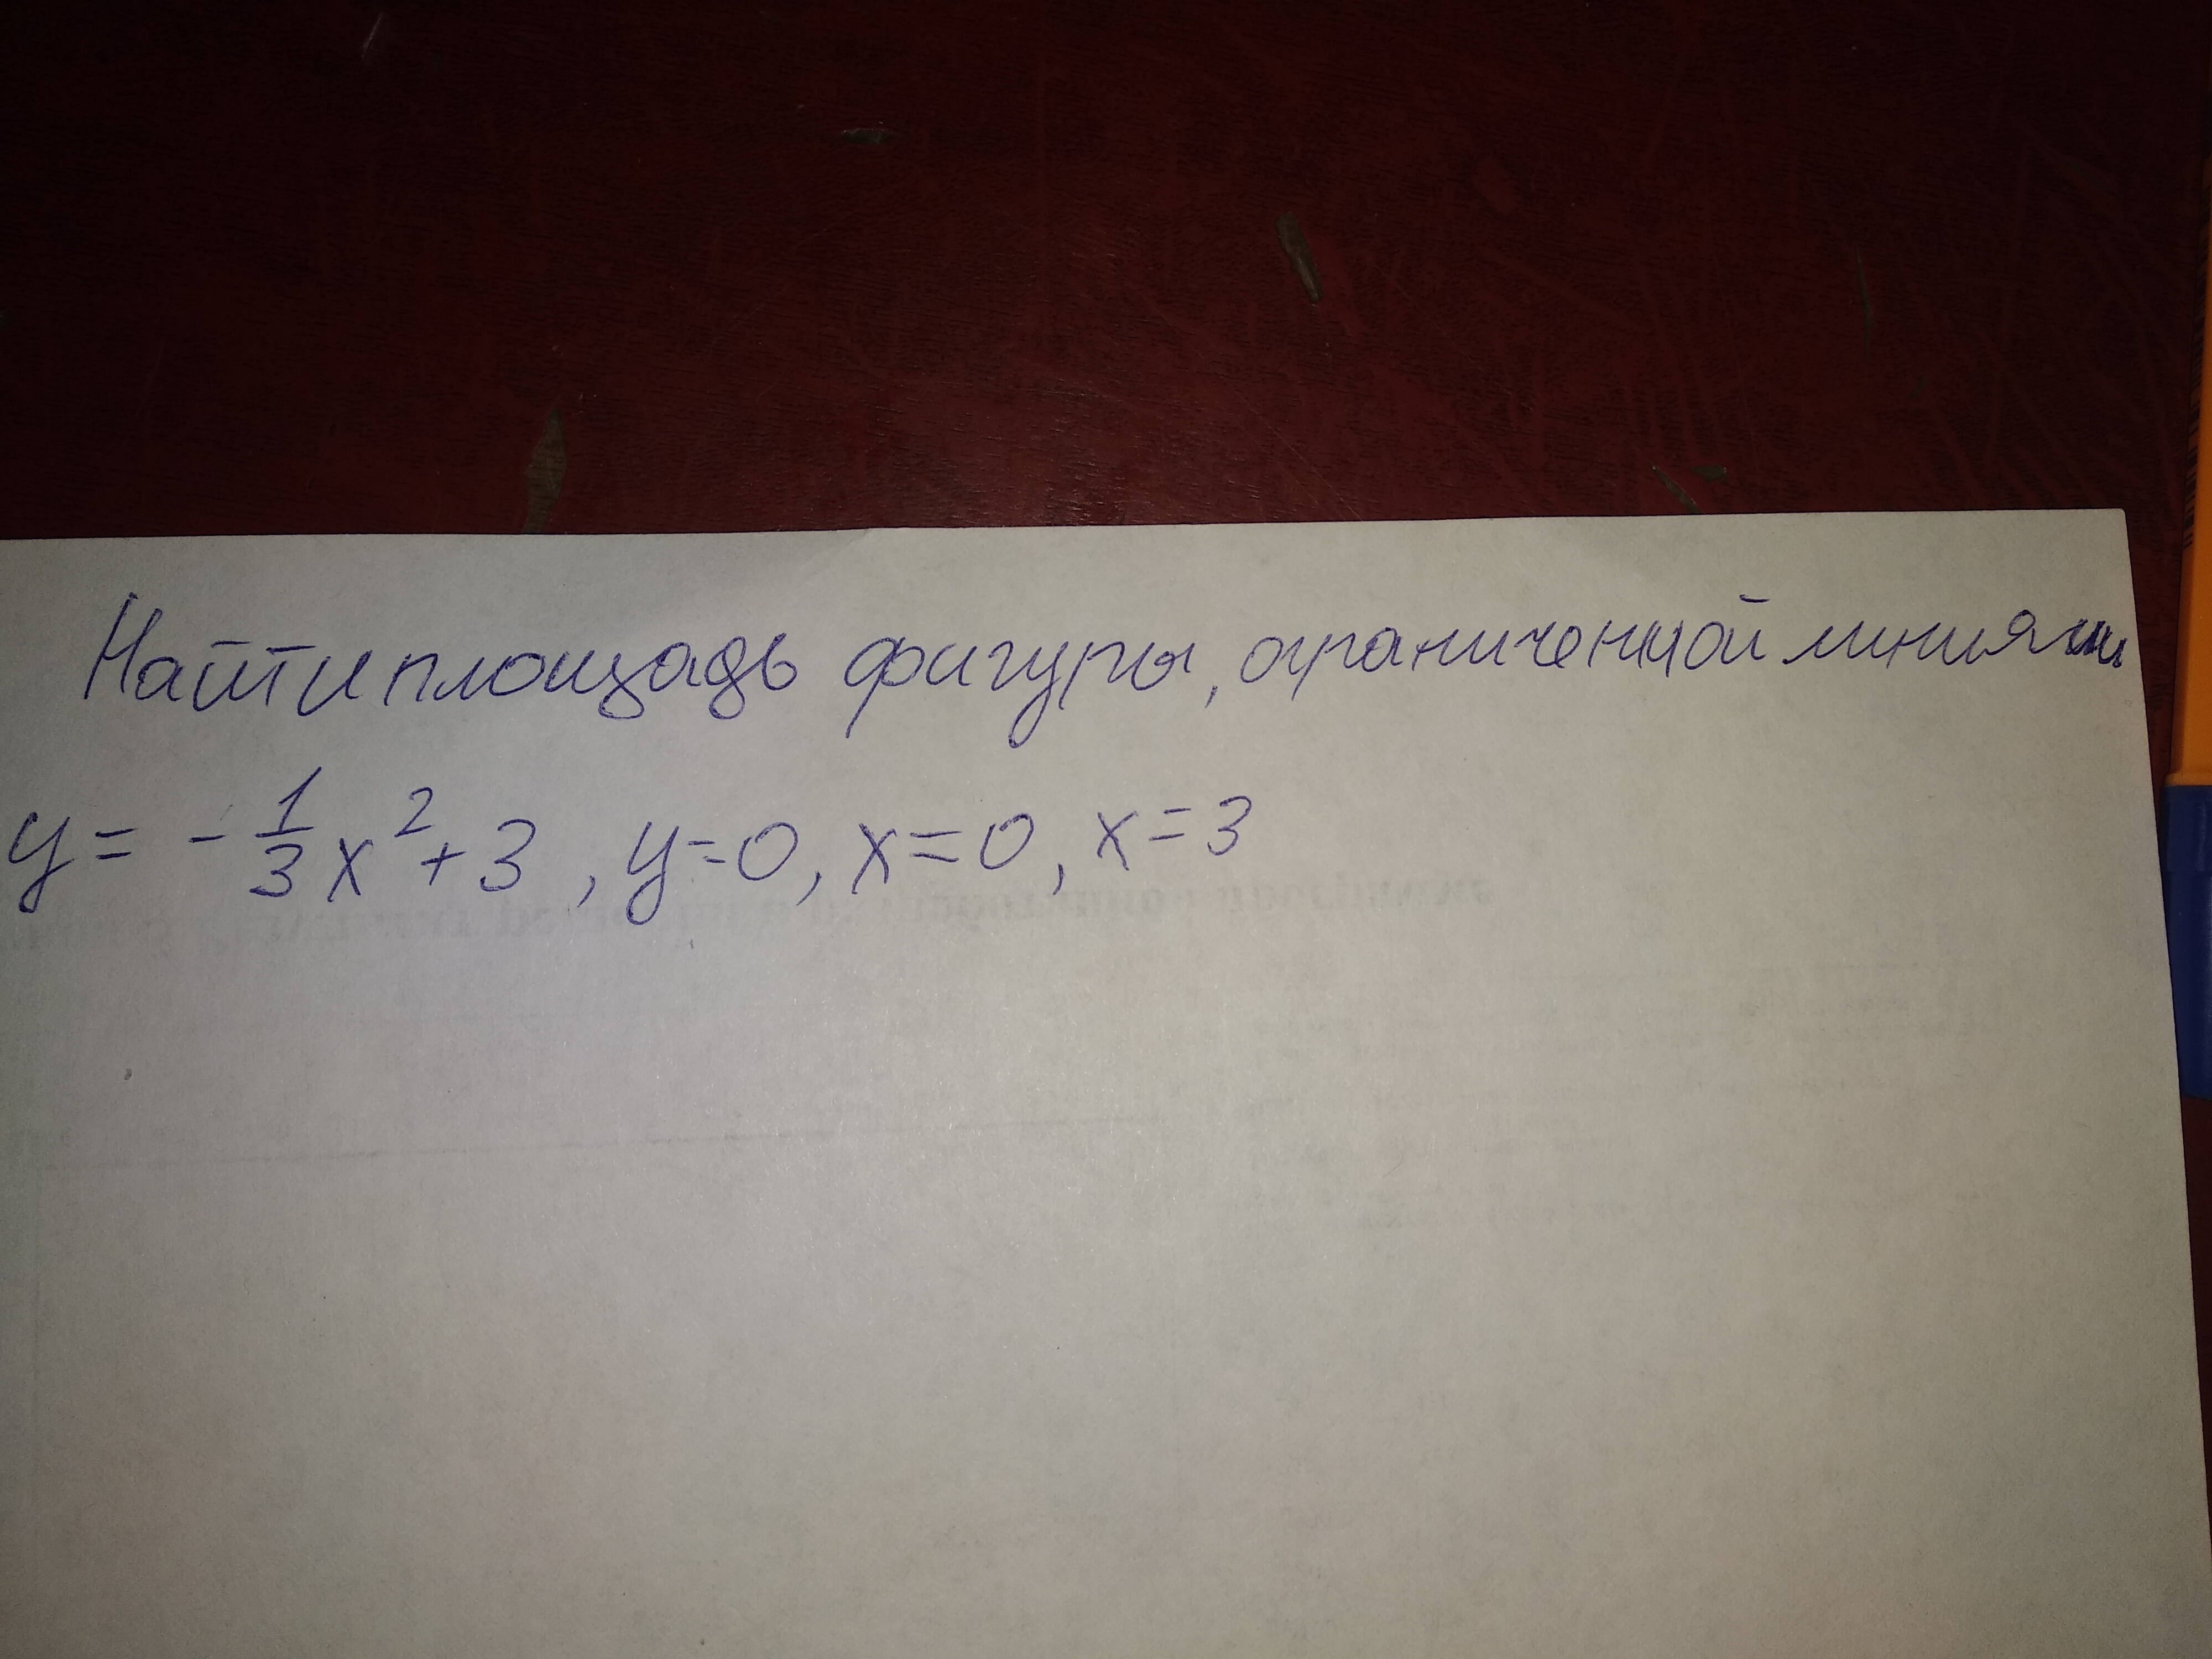 Найти площадь фигуры, ограниченной линиями
y = -1/3 x² + 3, y=0, x=0, x=3